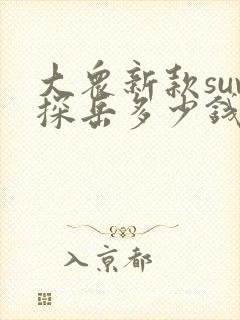 大众新款su
探岳多少钱
入京都